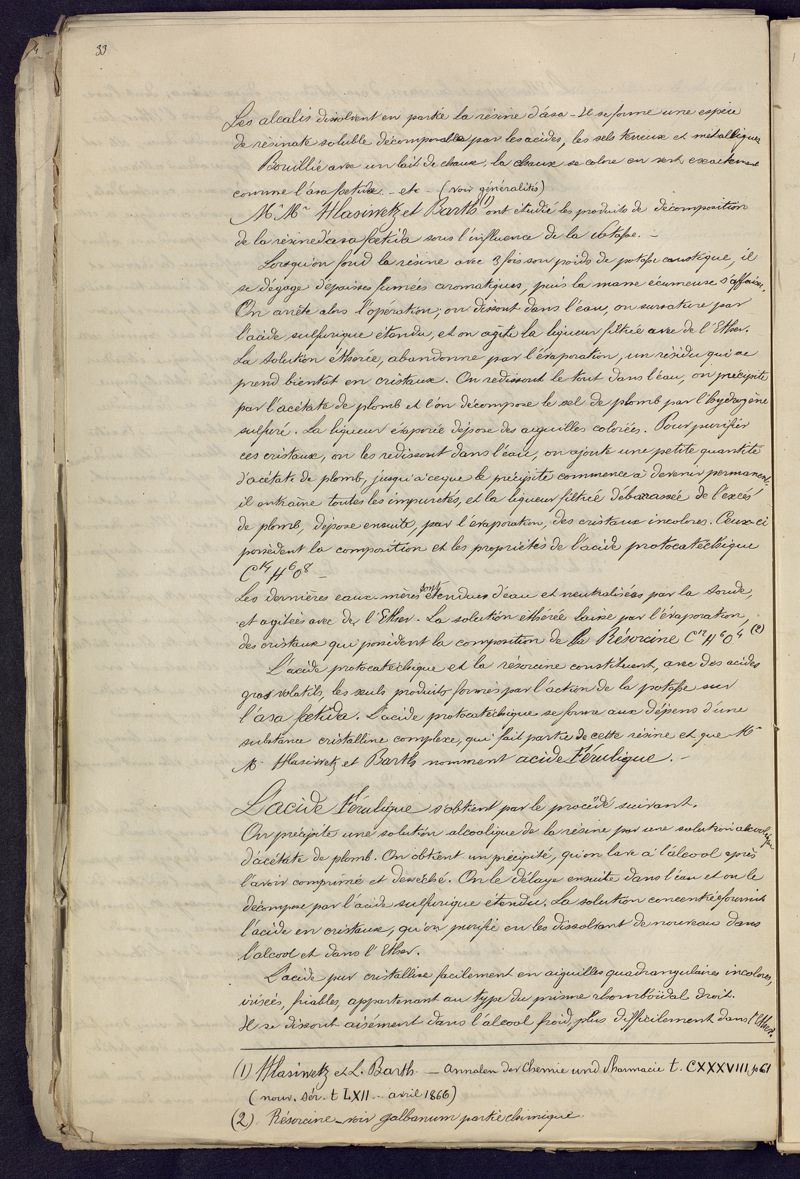 33
Les alcalis dissolvent en partie la résine d'asa - Il se forme une espèce
de résinate soluble décomposable par les acides, les sels terreux et métalliques
Bouillie avec un lait de chaux, la chaux se colore en vert exactement
comme l'asa foetida - etc - (voir généralités)
Mr Mr Hlasiwetz et Barth (1) ont étudié les produits de décomposition
de la résine d'asa foetida sous l'influence de la potasse. -
Lorsqu'on fond la résine avec 3 fois son poids de potasse caustique, il
se dégage d'épaisses fumées aromatiques, puis la masse écumeuse s'affaisse.
On arrête alors l'opération, on dissout dans l'eau, on sursature par
l'acide sulfurique étendu, et on agite la liqueur filtrée avec de l'Ether.
La solution éthérée, abandonne par l'évaporation, un résidu qui se
prend bientôt en cristaux. On redissout le tout dans l'eau, on précipite
par l'acétate de plomb et l'on décompose le sel de plomb par l'hydrogène
sulfuré. La liqueur évaporée dépose des aiguilles colorées. Pour purifier
ces cristaux, on les redissout dans l'eau, on ajoute une petite quantité
d'acétate de plomb, jusqu'à ce que le précipité commence à devenir permanent,
il entraîne toutes les impuretés, et la liqueur filtrée débarassée de l'excès
de plomb, dépose ensuite, par l'évaporation, des cristaux incolores. Ceux-ci
possèdent la composition et les propriétés de l'acide protocatéchique
C14 H6 O8 -
Les dernières eaux-mères sont étendues d'eau et neutralisées par la soude,
et agitées avec de l'Ether. La solution éthérée laisse par l'évaporation,
des cristaux qui possèdent la composition de la Résorcine C12 H6 O4 (2)
L'acide protocatéchique et la résorcine constituent, avec des acides
gras volatils, les seuls produits formés par l'action de la potasse sur
l'asa foetida. L'acide protocatéchique se forme aux dépens d'une
substance cristalline complexe, qui fait partie de cette résine et que Mr
Mr Hlasiwetz et Barth nomment acide Férulique. -
L'acide Férulique s'obtient par le procédé suivant.
On précipite une solution alcoolique de la résine par une solution alcoolique
d'acétate de plomb. On obtient un précipité, qu'on lave à l'alcool après
l'avoir comprimé et desséché. On le délaye ensuite dans l'eau et on le
décompose par l'acide sulfurique étendu. La solution concentrée fournit
l'acide en cristaux, qu'on purifie en les dissolvant de nouveau dans
l'alcool et dans l'Ether.
L'acide pur cristallise facilement en aiguilles quadrangulaires incolores,
irisées, friables, appartenant au type du prisme rhomboïdal droit.
Il se dissout aisément dans l'alcool froid, plus difficilement dans l'Ether.
(1) Hlasiwetz et L. Barth. - Annalen der Chemie und Pharmacie t. CXXXVIII p 61
(nouv. sér. t LXII - avril 1866)
(2) Résorcine - voir galbanum partie chimique.